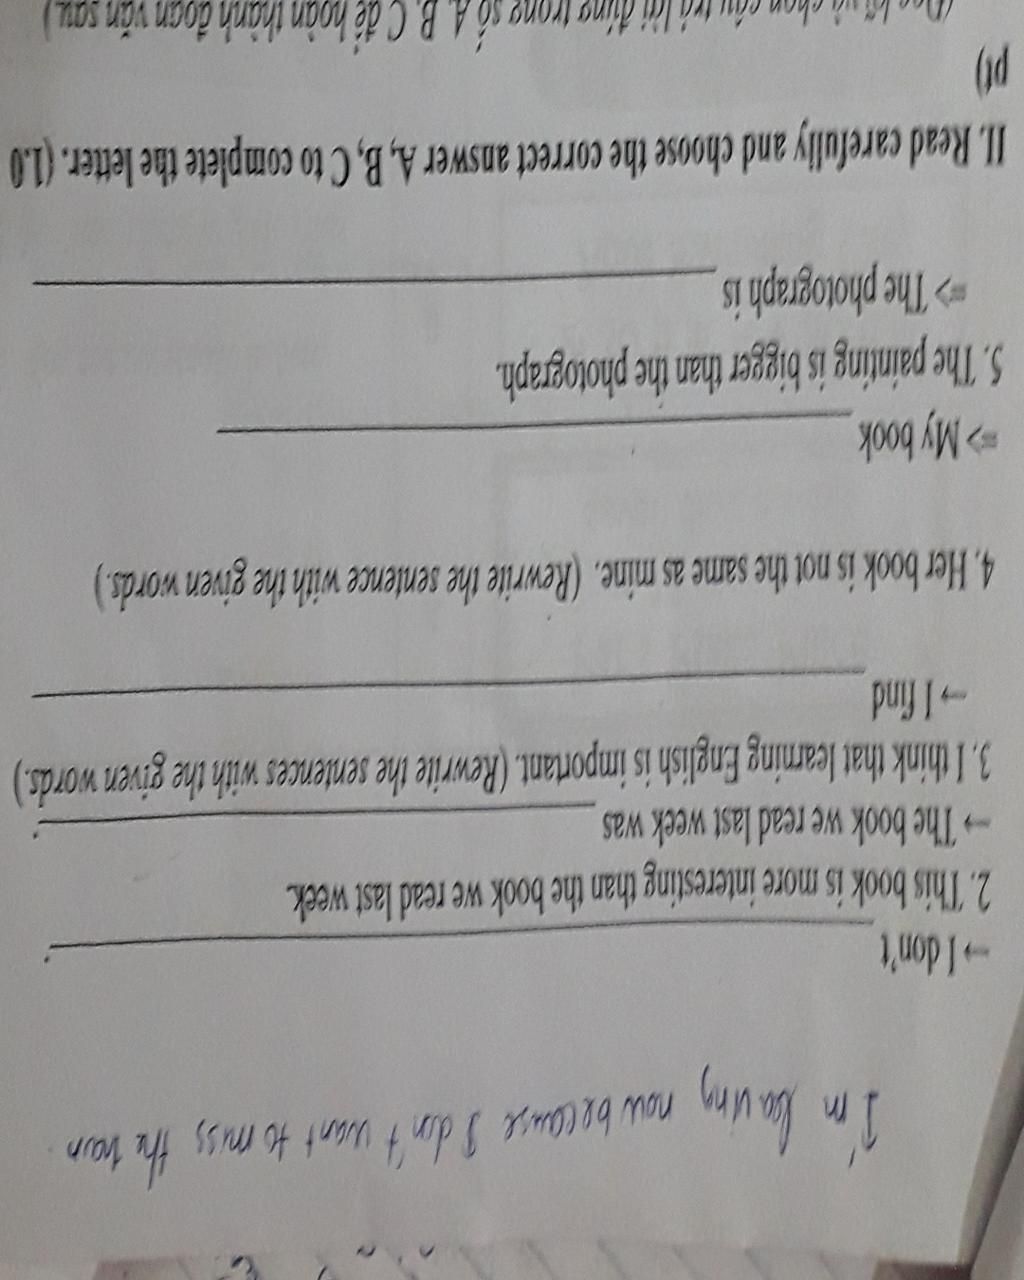 I'm leaving now because I don't want to miss the train.
→ I don't ____________________.
2. This book is more interesting than the book we read last week.
→ The book we read last week was ____________________.
3. I think that learning English is important. (Rewrite the sentences with the given words.)
→ I find ____________________
4. Her book is not the same as mine. (Rewrite the sentence with the given words.)
=> My book ____________________
5. The painting is bigger than the photograph.
=> The photograph is ____________________
II. Read carefully and choose the correct answer A, B, C to complete the letter. (1.0
pt)
(Đọc kĩ và chọn câu trả lời đúng trong số A, B, C để hoàn thành đoạn văn sau.)